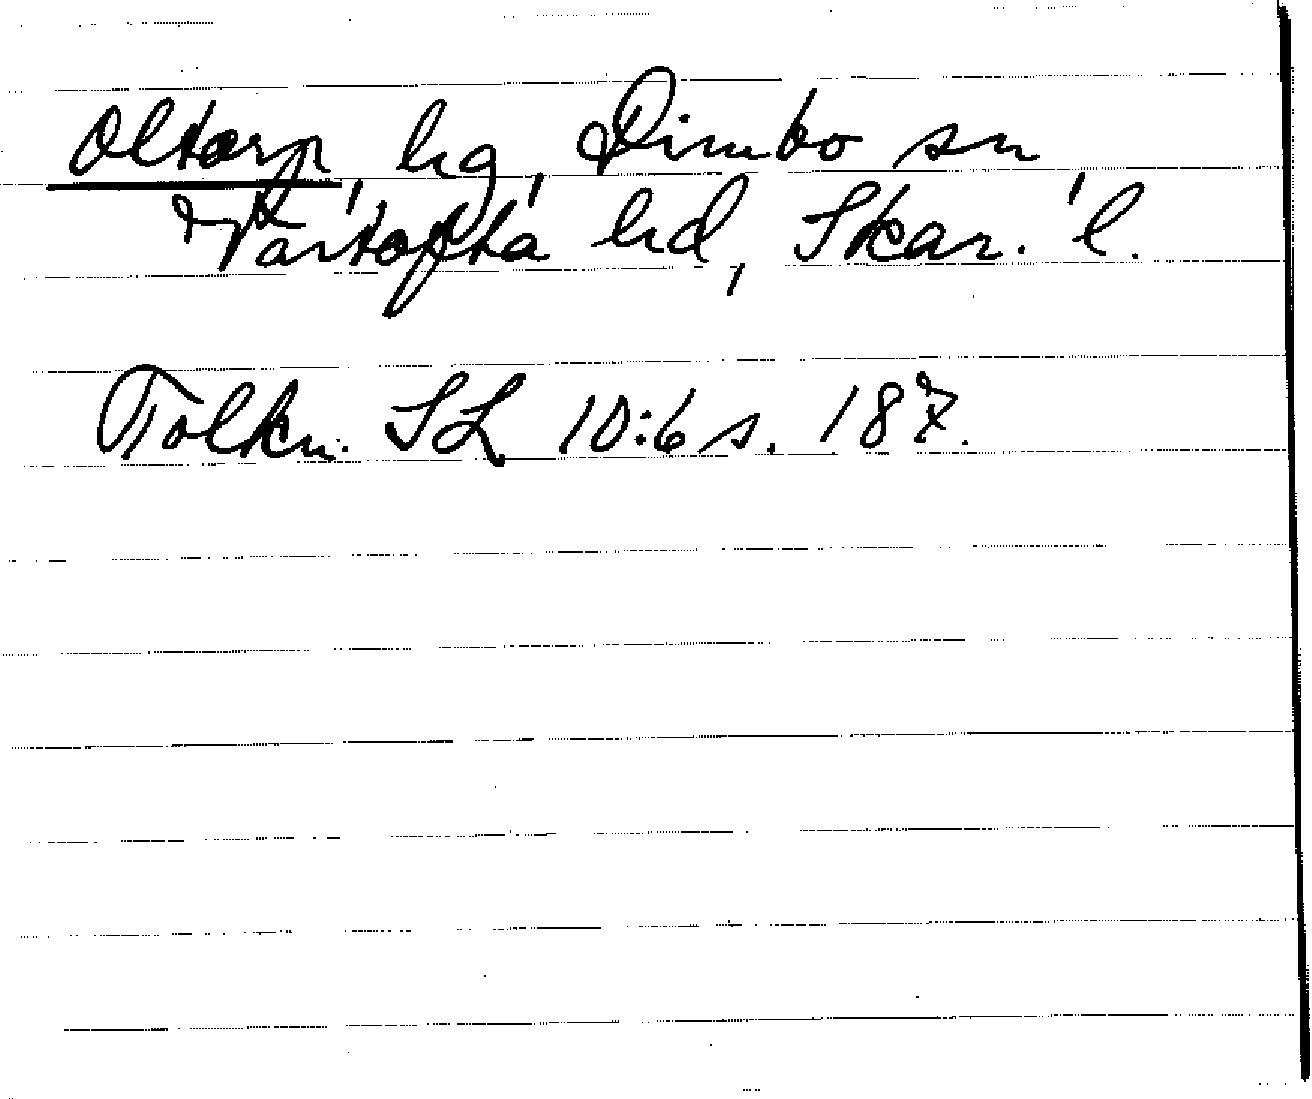 Oltorp, hg, Dimbo sn,
Vartofta hd, Skar. l.
Tolkn. SL 10:6 s. 187.